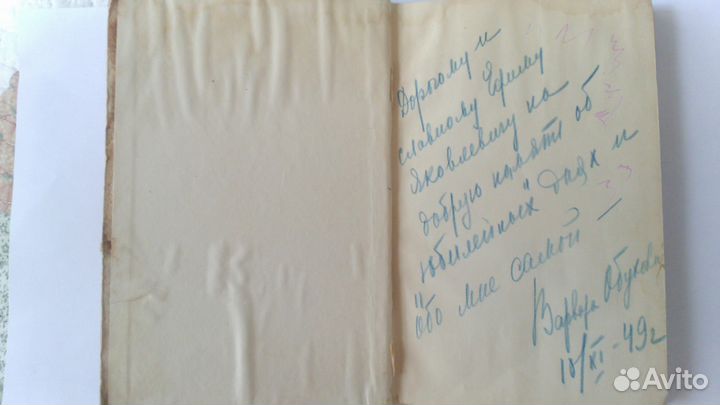 Дорогому и
славному Ефиму
Яковлевичу на
добрую память об
"юбилейных" днях и
обо мне самой —
Варвара Обухова
10/XI-49г
Avito